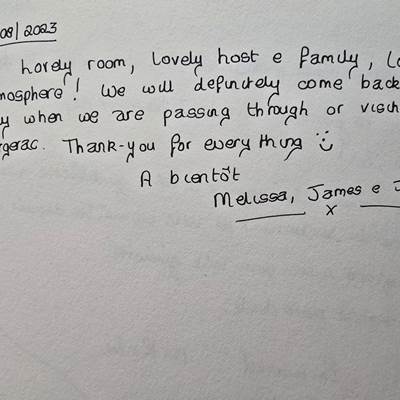 08/2023
Lovely room, Lovely host e family, Lo
mosphere! We will definitely come back
y when we are passing through or visi
rgerac. Thank-you for every thing
A bientôt
Melissa, James e J
x